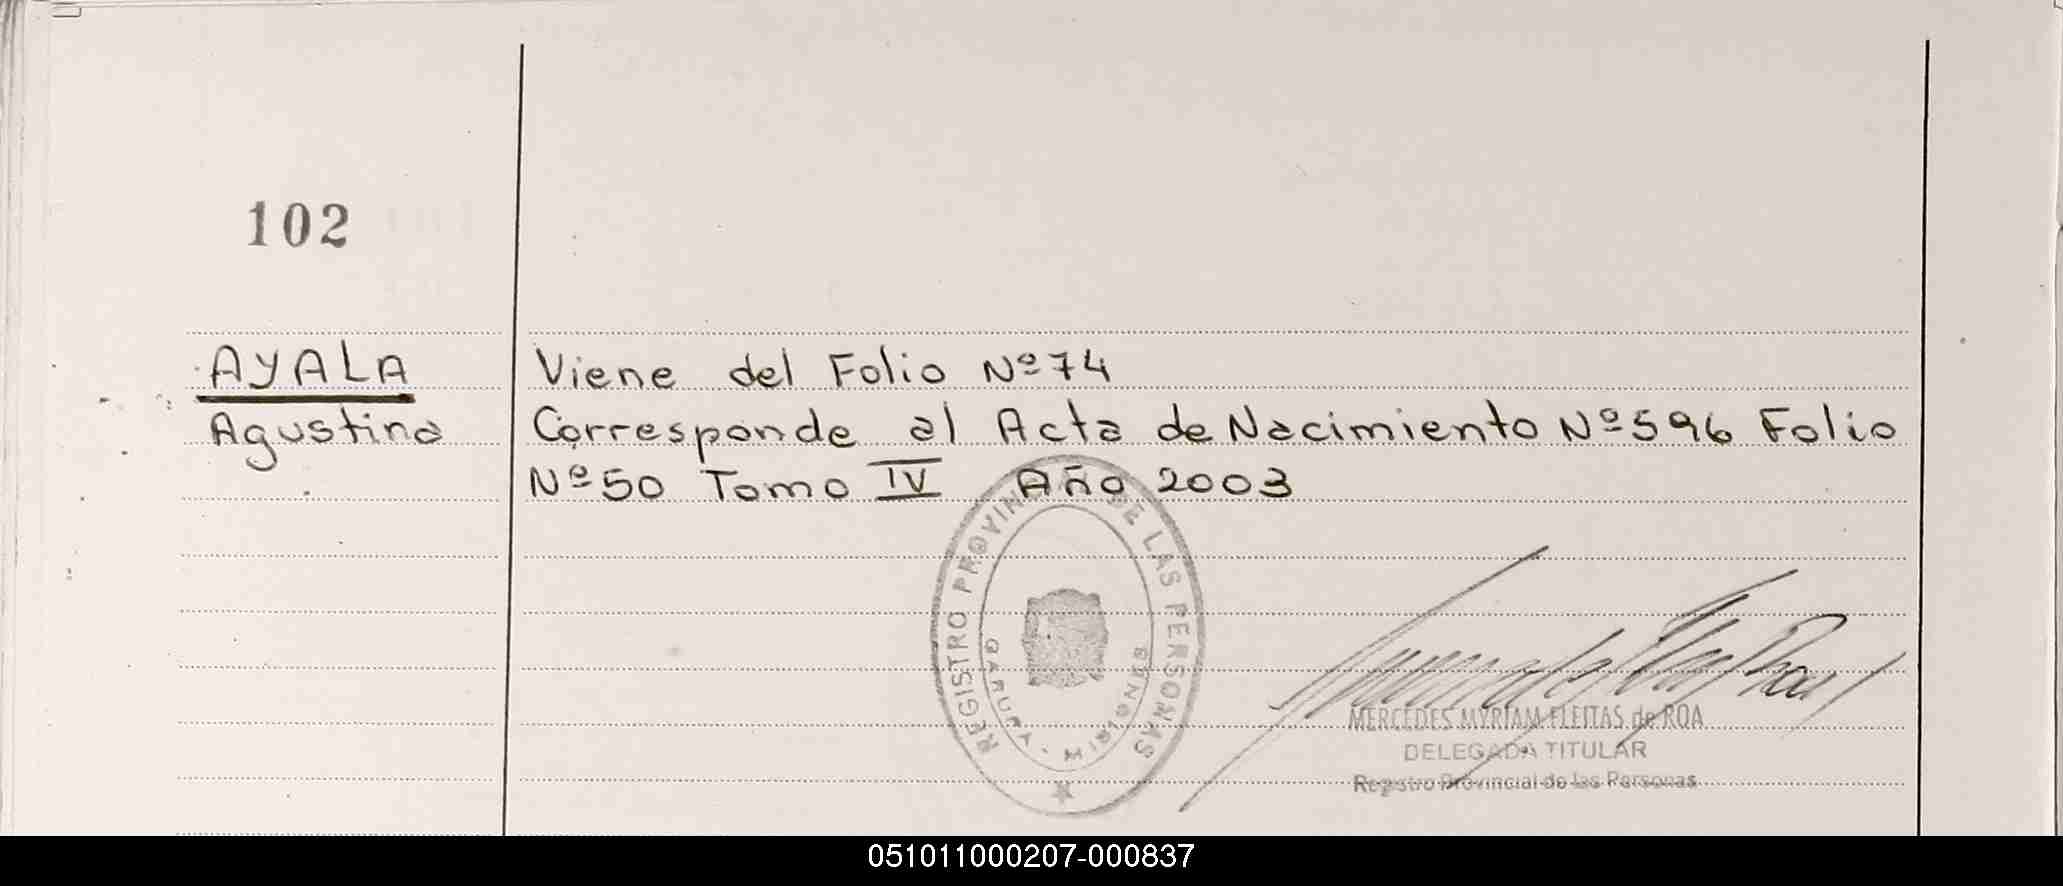 102
AYALA
Agustina
Viene del Folio Nº 74
Corresponde al Acta de Nacimiento Nº 596 Folio
Nº 50 Tomo IV Año 2003
REGISTRO PROVINCIAL DE LAS PERSONAS
GARUPA - MISIONES
MERCEDES MYRIAM FLEITAS de ROA
DELEGADA TITULAR
Registro Provincial de las Personas
051011000207-000837